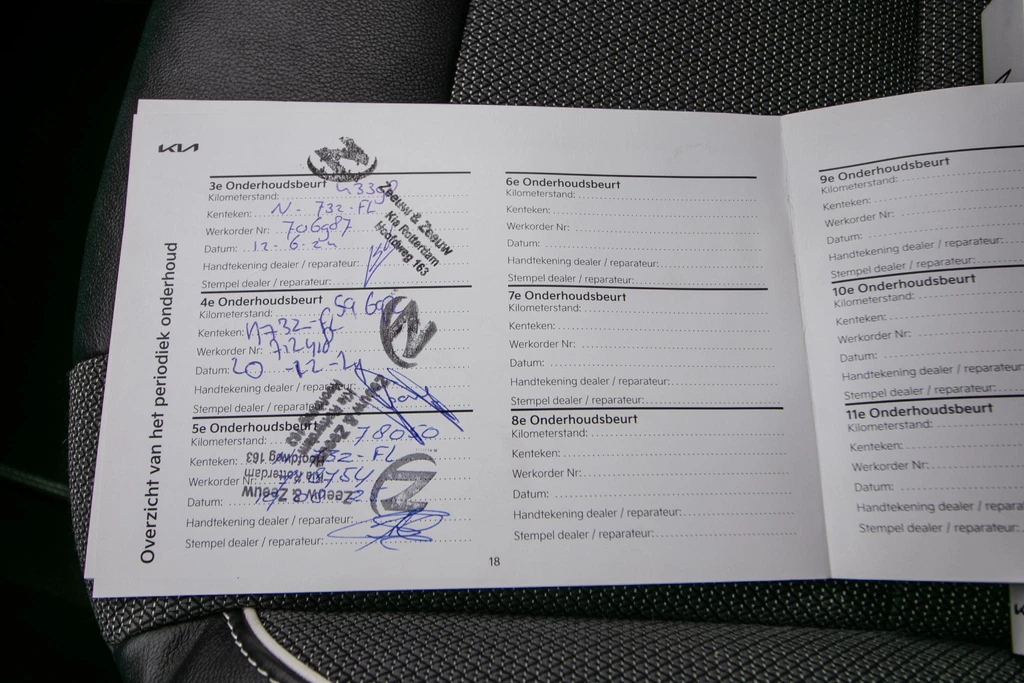 KIA
Overzicht van het periodiek onderhoud
3e Onderhoudsbeurt
Kilometerstand:
Kenteken: N-732-FL
Werkorder Nr: 706987
Datum: 12-6-24
Handtekening dealer / reparateur:
Stempel dealer / reparateur:
Zeeuw & Zeeuw
Kia Rotterdam
Hoofdweg 163
4e Onderhoudsbeurt
Kilometerstand:
Kenteken: N732-FL
Werkorder Nr: 712410
Datum: 20-12-2
Handtekening dealer / reparateur:
Stempel dealer / reparateur:
5e Onderhoudsbeurt
Kilometerstand: 78050
Kenteken: 732-FL
Werkorder Nr:
Datum:
Handtekening dealer / reparateur:
Stempel dealer / reparateur:
Zeeuw & Zeeuw
Kia Rotterdam
Hoofdweg 163
6e Onderhoudsbeurt
Kilometerstand:
Kenteken:
Werkorder Nr:
Datum:
Handtekening dealer / reparateur:
Stempel dealer / reparateur:
7e Onderhoudsbeurt
Kilometerstand:
Kenteken:
Werkorder Nr:
Datum:
Handtekening dealer / reparateur:
Stempel dealer / reparateur:
8e Onderhoudsbeurt
Kilometerstand:
Kenteken:
Werkorder Nr:
Datum:
Handtekening dealer / reparateur:
Stempel dealer / reparateur:
18
9e Onderhoudsbeurt
Kilometerstand:
Kenteken:
Werkorder Nr:
Datum:
Handtekening dealer / reparateur:
Stempel dealer / reparateur:
10e Onderhoudsbeurt
Kilometerstand:
Kenteken:
Werkorder Nr:
Datum:
Handtekening dealer / reparateur
Stempel dealer / reparateur:
11e Onderhoudsbeurt
Kilometerstand:
Kenteken:
Werkorder Nr:
Datum:
Handtekening dealer / repara
Stempel dealer / reparateur: